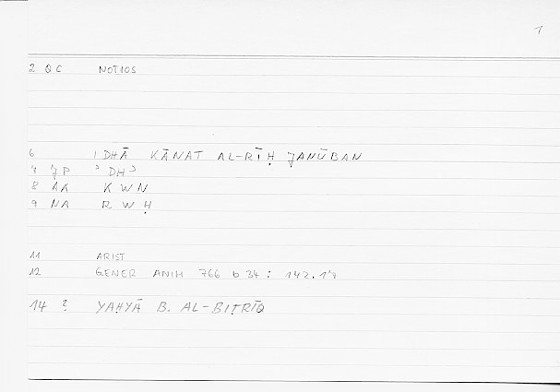 1
2 QC NOTIOS
6 IDHĀ KĀNAT AL-RĪḤ JANŪBAN
7 JP ʾDHʾ
8 AA KWN
9 NA RWḤ
11 ARIST
12 GENER ANIM 766 b 34 : 142.14
14 ? YAḤYĀ B. AL-BIṬRĪQ